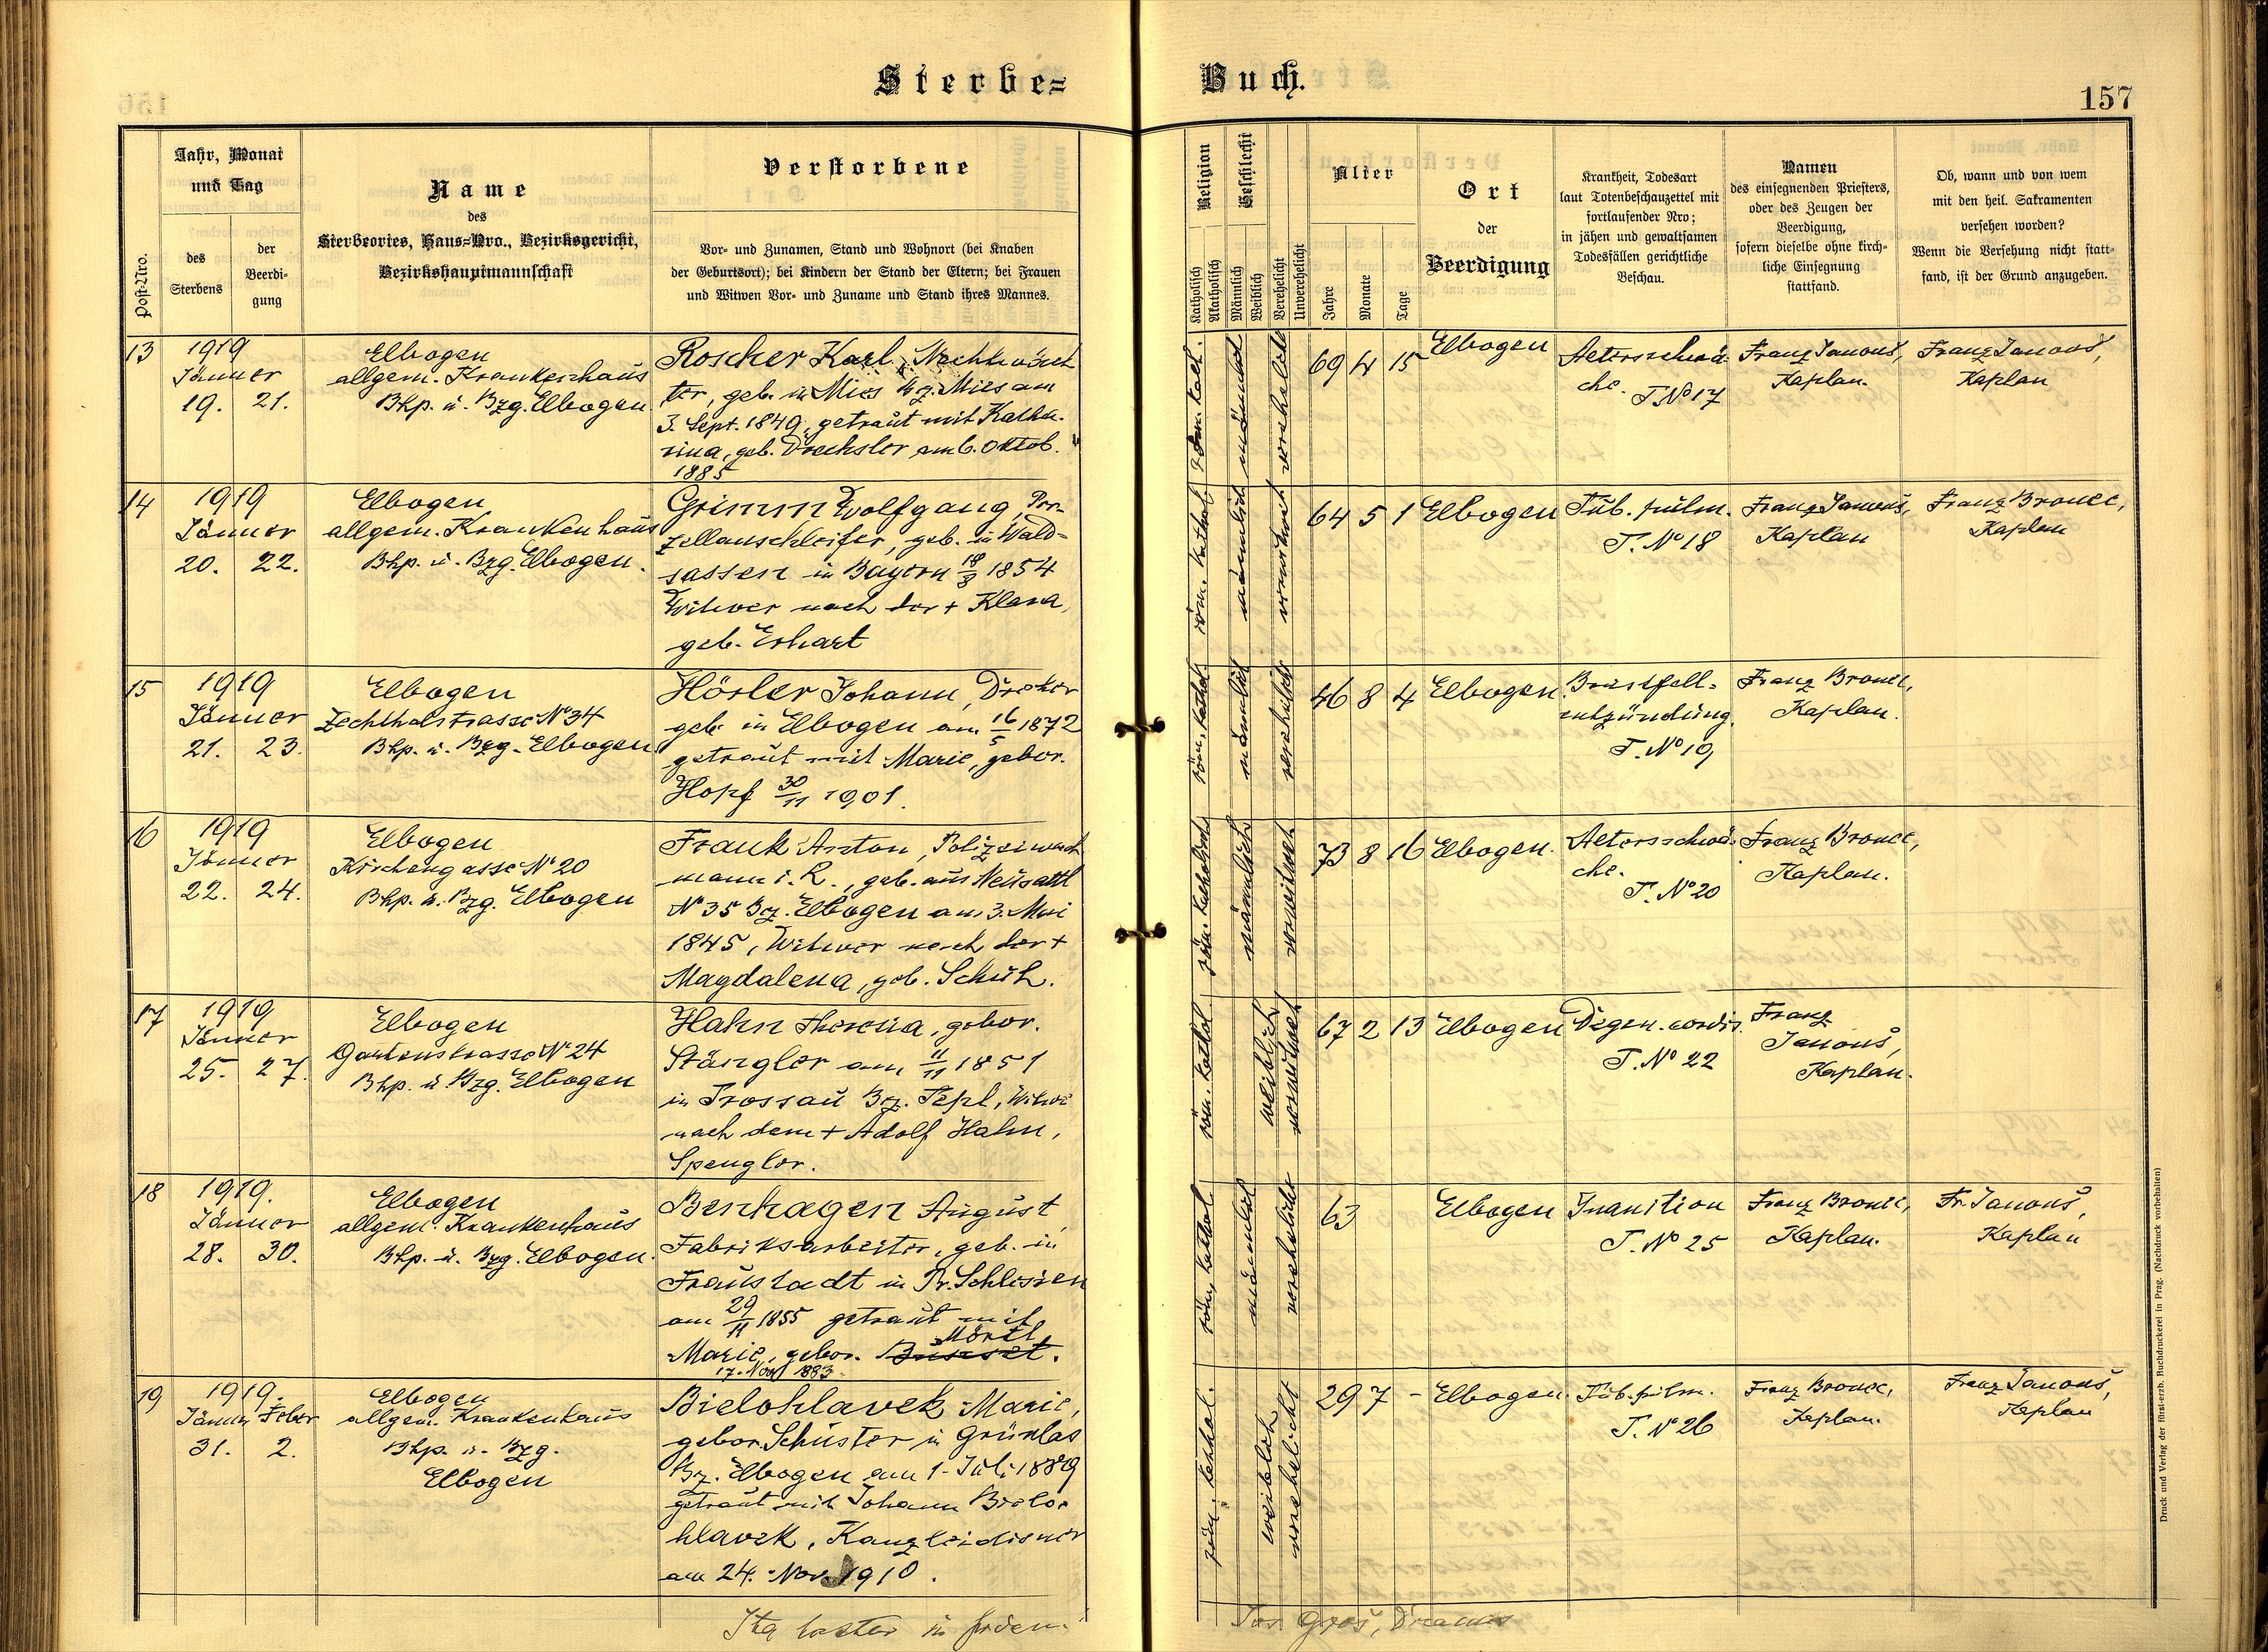 Sterbe=
Buch.
157
Post-Nro.
Jahr, Monat
und Tag
des
Sterbens
der
Beerdi-
gung
Name
des
Sterbeortes, Haus-Nro., Bezirksgericht,
Bezirkshauptmannschaft
Verstorbene
Vor- und Zunamen, Stand und Wohnort (bei Knaben
der Geburtsort); bei Kindern der Stand der Eltern; bei Frauen
und Witwen Vor- und Zuname und Stand ihres Mannes.
Religion
Katholisch
Akatholisch
Geschlecht
Männlich
Weiblich
Verehelicht
Unverehelicht
Alter
Jahre
Monate
Tage
Ort
der
Beerdigung
Krankheit, Todesart
laut Totenbeschauzettel mit
fortlaufender Nro;
in jähen und gewaltsamen
Todesfällen gerichtliche
Beschau.
Namen
des einsegnenden Priesters,
oder des Zeugen der
Beerdigung,
sofern dieselbe ohne kirch-
liche Einsegnung
stattfand.
Ob, wann und von wem
mit den heil. Sakramenten
versehen worden?
Wenn die Versehung nicht statt-
fand, ist der Grund anzugeben.
13
1919
Jänner
19. 21.
Elbogen
allgem. Krankenhaus
Bhp. u. Bzg. Elbogen
Roscher Karl, Nachtwäch
ter, geb. in Mies Bz. Mies am
3. Sept. 1849, getraut mit Katha-
rina, geb. Drechsler am 6. Oktob.
1885
röm. kath.
männlich
verehelicht
69 4 15
Elbogen
Altersschwä-
che.
T. No 17
Franz Janouš,
Kaplan.
Franz Janouš,
Kaplan
14
1919
Jänner
20. 22.
Elbogen
allgem. Krankenhaus
Bhp. u. Bzg. Elbogen.
Grimm Wolfgang, Por-
zellanschleifer, geb. in Wald-
sassen in Bayern 18/8 1854
Witwer nach der + Klara,
geb. Erhart
röm. kathol.
männlich
verwitwet
64 5 1
Elbogen
Tub. pulm.
T. No 18
Franz Janouš,
Kaplan
Franz Bronec,
Kaplan
15
1919
Jänner
21. 23.
Elbogen
Zechthalstrasse No 34
Bhp. u. Bzg. Elbogen
Hösler Johann, Dreher
geb. in Elbogen am 16/5 1872
getraut mit Marie, gebor.
Hopf 30/11 1901.
röm. kathol.
männlich
verehelicht
46 8 4
Elbogen
Brustfell-
entzündung.
T. No 19
Franz Bronec,
Kaplan.
16
1919
Jänner
22. 24.
Elbogen
Kirchengasse No 20
Bhp. u. Bzg. Elbogen
Frank Anton, Polizeiwach
mann i. R., geb. aus Neusattl
No 35 Bz. Elbogen am 3. Mai
1845, Witwer nach der +
Magdalena, geb. Schuh.
röm. katholisch
männlich
verwitwet
73 8 16
Elbogen.
Altersschwä-
che.
T. No 20
Franz Bronec,
Kaplan.
17
1919
Jänner
25. 27.
Elbogen
Gartenstrasse No 24
Bhp. u. Bzg. Elbogen
Hahn Theresia, gebor.
Stängler am 11/11 1851
in Trossau Bz. Tepl, Witwe
nach dem + Adolf Hahn,
Spengler.
röm. kathol.
weiblich
verwitwet
67 2 13
Elbogen
Degen. cordis.
T. No 22
Franz
Janouš,
Kaplan.
18
1919.
Jänner
28. 30.
Elbogen
allgem. Krankenhaus
Bhp. u. Bzg. Elbogen.
Benhagen August,
Fabriksarbeiter, geb. in
Fraustadt in Pr. Schlesien
am 29/11 1855 getraut mit
Mörtl,
Marie, gebor.
17. Nov 1883.
röm. kathol.
männlich
verehelicht
63
Elbogen
Inanition
T. No 25
Franz Bronec,
Kaplan.
Fr. Janouš,
Kaplan
19
1919.
Jänner Feber
31. 2.
Elbogen
allgem. Krankenhaus
Bhp. u. Bzg.
Elbogen
Bielohlavek Marie,
gebor. Schuster in Grünlas
Bz. Elbogen am 1. Juli 1889
getraut mit Johann Bielo-
hlavek, Kanzleidiener
am 24. Nov. 1910.
röm. kathol.
weiblich
verehelicht
29 7 -
Elbogen.
Tub. pulm.
T. No 26
Franz Bronec,
Kaplan.
Franz Janouš,
Kaplan
Druck und Verlag der fürst-erzb. Buchdruckerei in Prag. (Nachdruck vorbehalten)